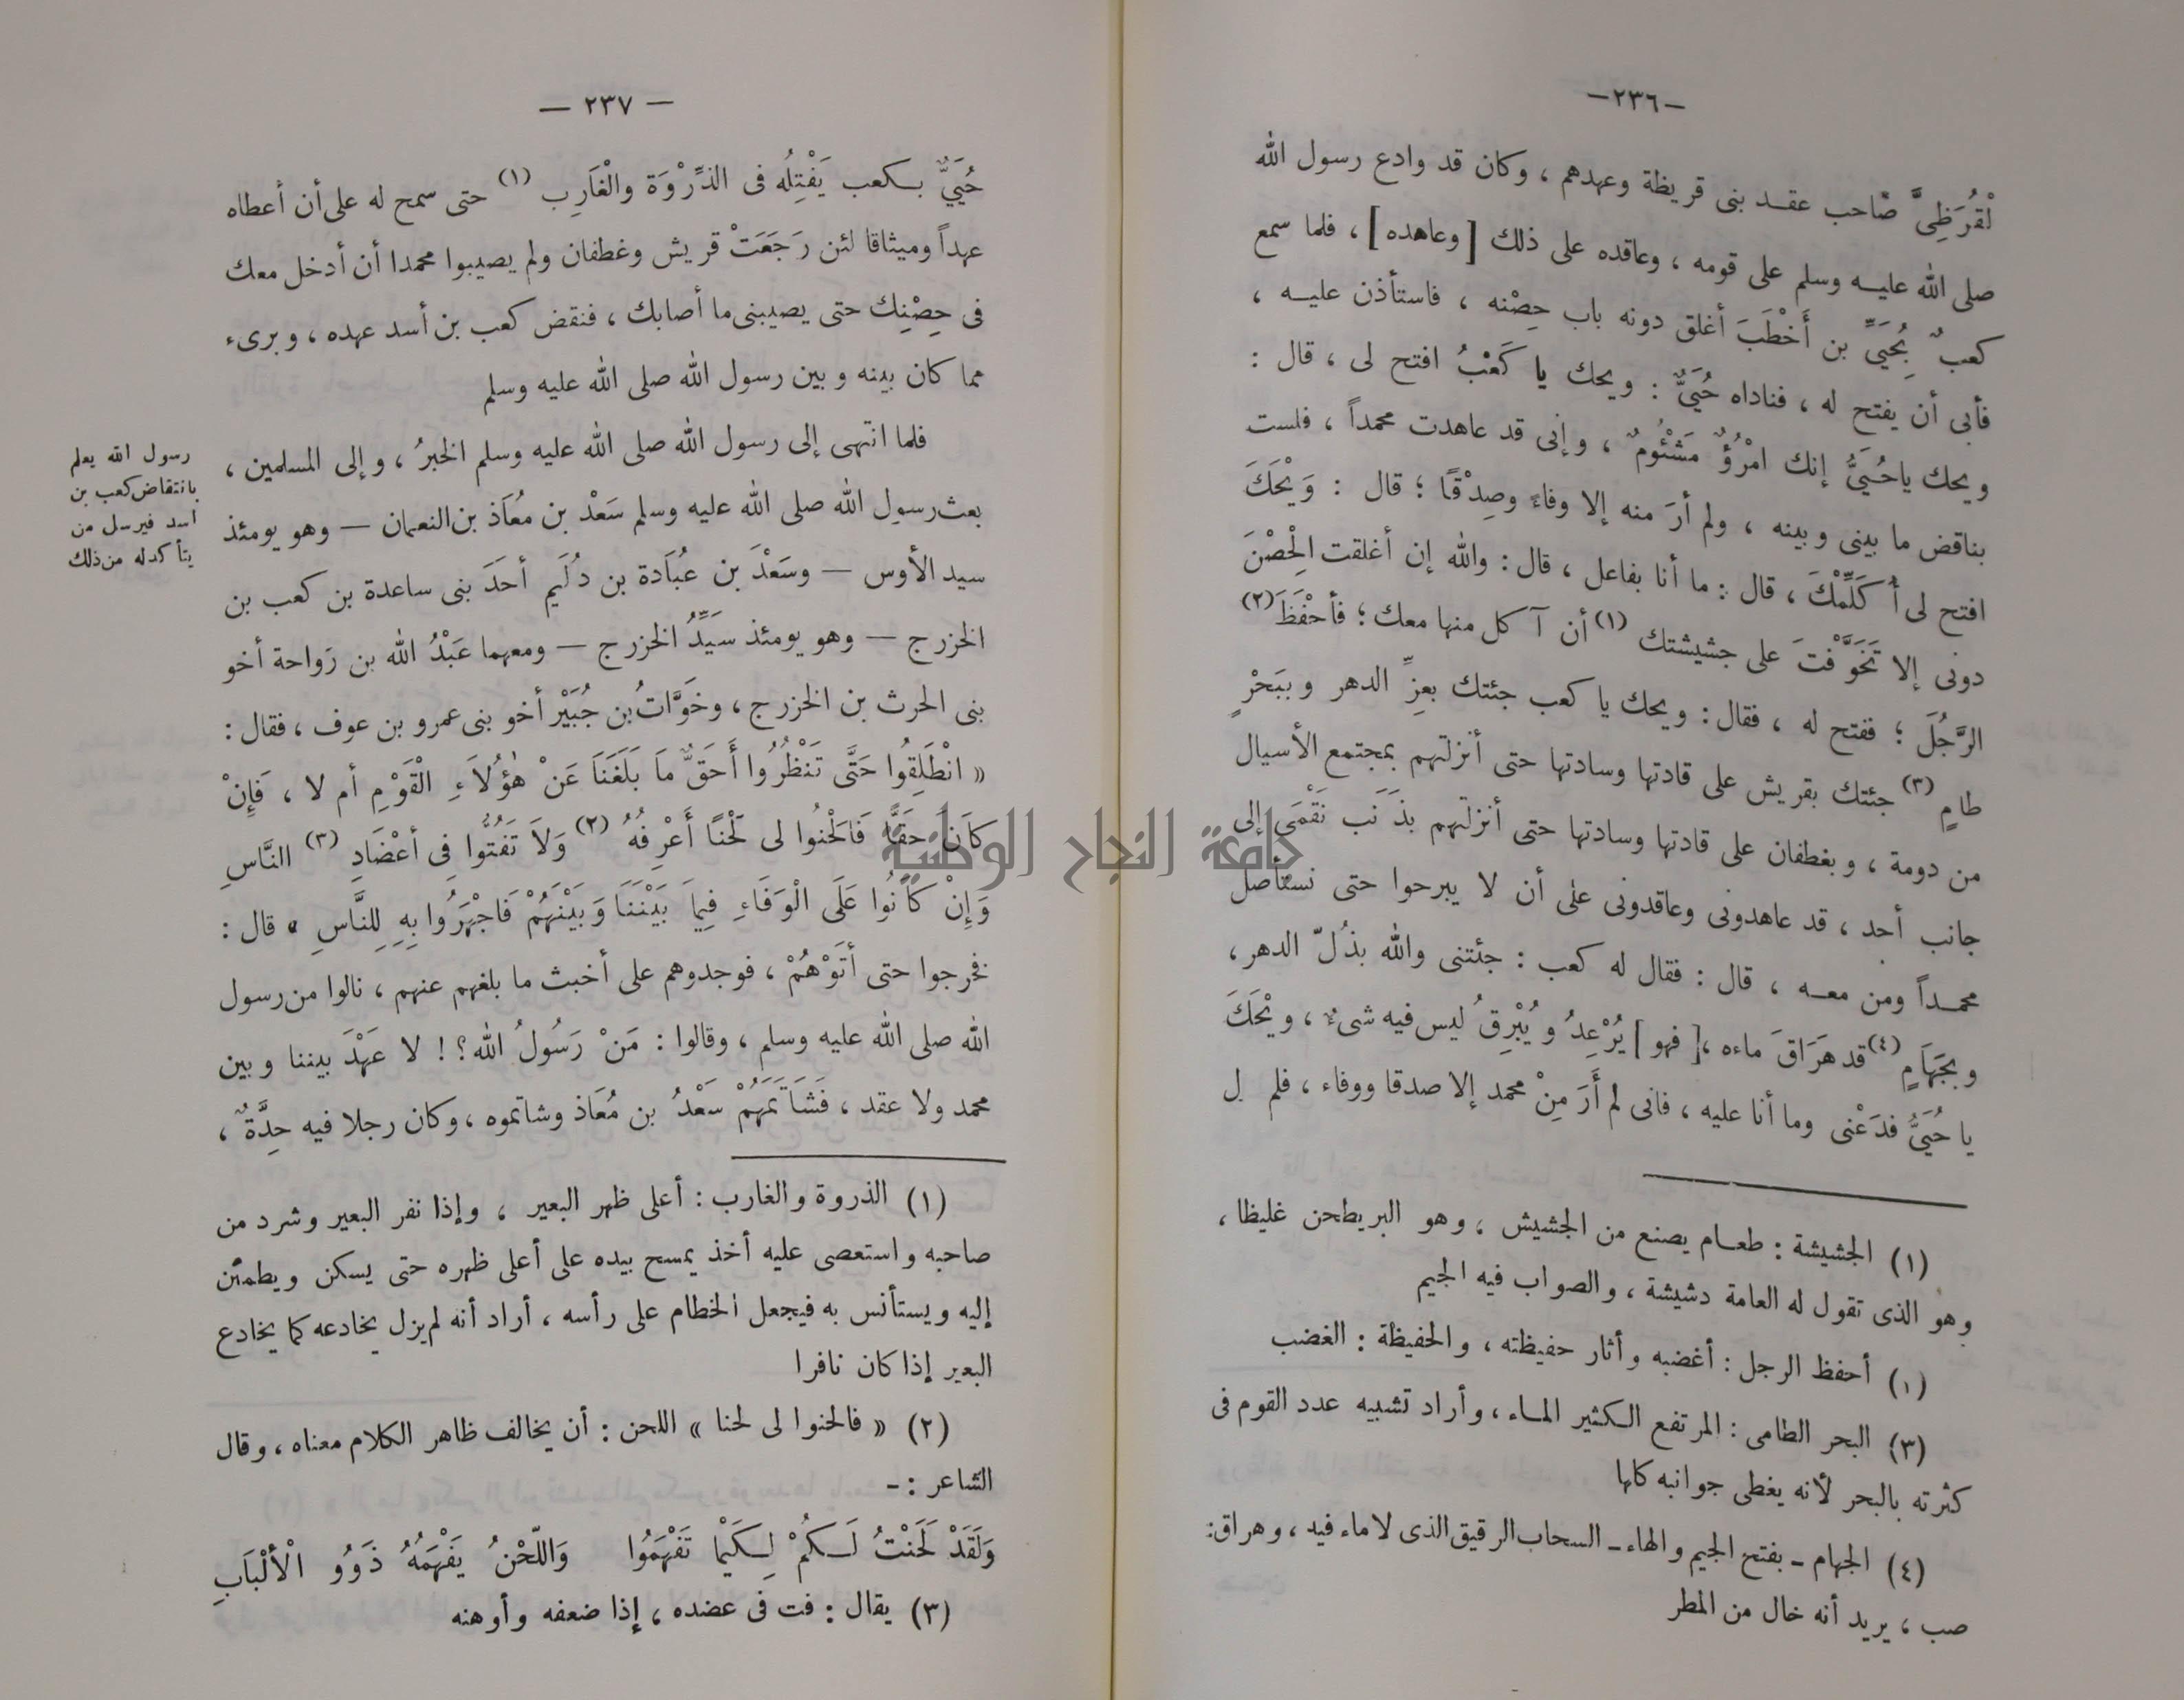 —٢٣٦—
لْقُرَظِىَّ صاحب عقد بنى قريظة وعهدهم ، وكان قد وادع رسول الله
صلى الله عليه وسلم على قومه ، وعاقده على ذلك [وعاهده] ، فلما سمع
كعبٌ بِحُيَىِّ بن أَخْطَبَ أغلق دونه باب حِصْنه ، فاستأذن عليه ،
فأبى أن يفتح له ، فناداه حُيَىٌّ : ويحك يا كَعْبُ افتح لى ، قال :
ويحك ياحُيَىُّ إنك امْرُؤٌ مَشْئُومٌ ، وإنى قد عاهدت محمداً ، فلست
بناقض ما بينى وبينه ، ولم أرَ منه إلا وفاءً وصِدْقًا ؛ قال : وَيْحَكَ
افتح لى أُكَلِّمْكَ ، قال : ما أنا بفاعل ، قال : والله إن أغلقت الْحِصْنَ
دونى إلا تَخَوَّفْتَ على جشيشتك (١) أن آكل منها معك ؛ فأحْفَظَ (٢)
الرَّجُلَ ؛ ففتح له ، فقال : ويحك يا كعب جئتك بعِزِّ الدهر وبِبَحْرٍ
طامٍ (٣) جئتك بقريش على قادتها وسادتها حتى أنزلتهم بمجتمع الأسيال
من دومة ، وبغطفان على قادتها وسادتها حتى أنزلتهم بذَنَب نَقْمَى إلى
جانب أحد ، قد عاهدونى وعاقدونى على أن لا يبرحوا حتى نستأصل
محمداً ومن معه ، قال : فقال له كعب : جئتنى والله بذُلّ الدهر ،
وبجَهَامٍ (٤) قد هَرَاقَ ماءه ، [فهو] يُرْعِدُ ويُبْرِقُ ليس فيه شىءٌ ، ويْحَكَ
يا حُيَىُّ فدَعْنى وما أنا عليه ، فانى لم أَرَ مِنْ محمد إلا صدقا ووفاء ، فلم ل
(١) الجشيشة : طعام يصنع من الجشيش ، وهو البر يطحن غليظا ،
وهو الذى تقول له العامة دشيشة ، والصواب فيه الجيم
(١) أحفظ الرجل : أغضبه وأثار حفيظته ، والحفيظة : الغضب
(٣) البحر الطامى : المرتفع الكثير الماء ، وأراد تشبيه عدد القوم فى
كثرته بالبحر لأنه يغطى جوانبه كلها
(٤) الجهام - بفتح الجيم والهاء - السحاب الرقيق الذى لاماء فيه ، وهراق :
صب ، يريد أنه خال من المطر
— ٢٣٧ —
حُيَيٌّ بكعب يَفْتِلُه فى الذِّرْوَة والْغَارِب (١) حتى سمح له على أن أعطاه
عهداً وميثاقا لئن رَجَعَتْ قريش وغطفان ولم يصيبوا محمدا أن أدخل معك
فى حِصْنِك حتى يصيبنى ما أصابك ، فنقض كعب بن أسد عهده ، وبرىء
مما كان بينه وبين رسول الله صلى الله عليه وسلم
فلما انتهى إلى رسول الله صلى الله عليه وسلم الخبرُ ، وإلى المسلمين ،
بعث رسول الله صلى الله عليه وسلم سَعْد بن مُعَاذ بن النعمان — وهو يومئذ
سيد الأوس — وسَعْدَ بن عُبَادة بن دُلَيم أحَدَ بنى ساعدة بن كعب بن
الخزرج — وهو يومئذ سَيِّدُ الخزرج — ومعهما عَبْدُ الله بن رَواحة أخو
بنى الحرث بن الخزرج ، وخَوَّاتُ بن جُبَيْر أخو بنى عمرو بن عوف ، فقال :
« انْطَلِقُوا حَتَّى تَنْظُرُوا أَحَقٌّ مَا بَلَغَنَا عَنْ هٰؤُلَاءِ الْقَوْمِ أم لا ، فَإِنْ
كَانَ حَقًّا فَالْحَنُوا لى لَحْنًا أَعْرِفُهُ (٢) وَلَا تَفُتُّوا فِى أعْضَادِ (٣) النَّاسِ
وَإِنْ كَانُوا عَلَى الْوَفَاءِ فِيمَا بَيْنَنَا وَبَيْنَهُمْ فَاجْهَرُوا بِهِ لِلنَّاسِ » قال :
فخرجوا حتى أتَوْهُمْ ، فوجدوهم على أخبث ما بلغهم عنهم ، نالوا من رسول
الله صلى الله عليه وسلم ، وقالوا : مَنْ رَسُولُ الله ؟ ! لا عَهْدَ بيننا وبين
محمد ولا عقد ، فَشَاتَمَهُمْ سَعْدُ بن مُعَاذ وشاتموه ، وكان رجلا فيه حِدَّةٌ ،
رسول الله يعلم
بانتقاض كعب بن
أسد فيرسل من
يتأكد له من ذلك
(١) الذروة والغارب : أعلى ظهر البعير ، وإذا نفر البعير وشرد من
صاحبه واستعصى عليه أخذ يمسح بيده على أعلى ظهره حتى يسكن ويطمئن
إليه ويستأنس به فيجعل الخطام على رأسه ، أراد أنه لم يزل يخادعه كما يخادع
البعير إذا كان نافرا
(٢) « فالحنوا لى لحنا » اللحن : أن يخالف ظاهر الكلام معناه ، وقال
الشاعر : -
وَلَقَدْ لَحَنْتُ لَكُمْ لِكَيْمَا تَفْهَمُوا وَاللَّحْنُ يَفْهَمُهُ ذَوُو الْأَلْبَابِ
(٣) يقال : فت فى عضده ، إذا ضعفه وأوهنه
جامعة النجاح الوطنية